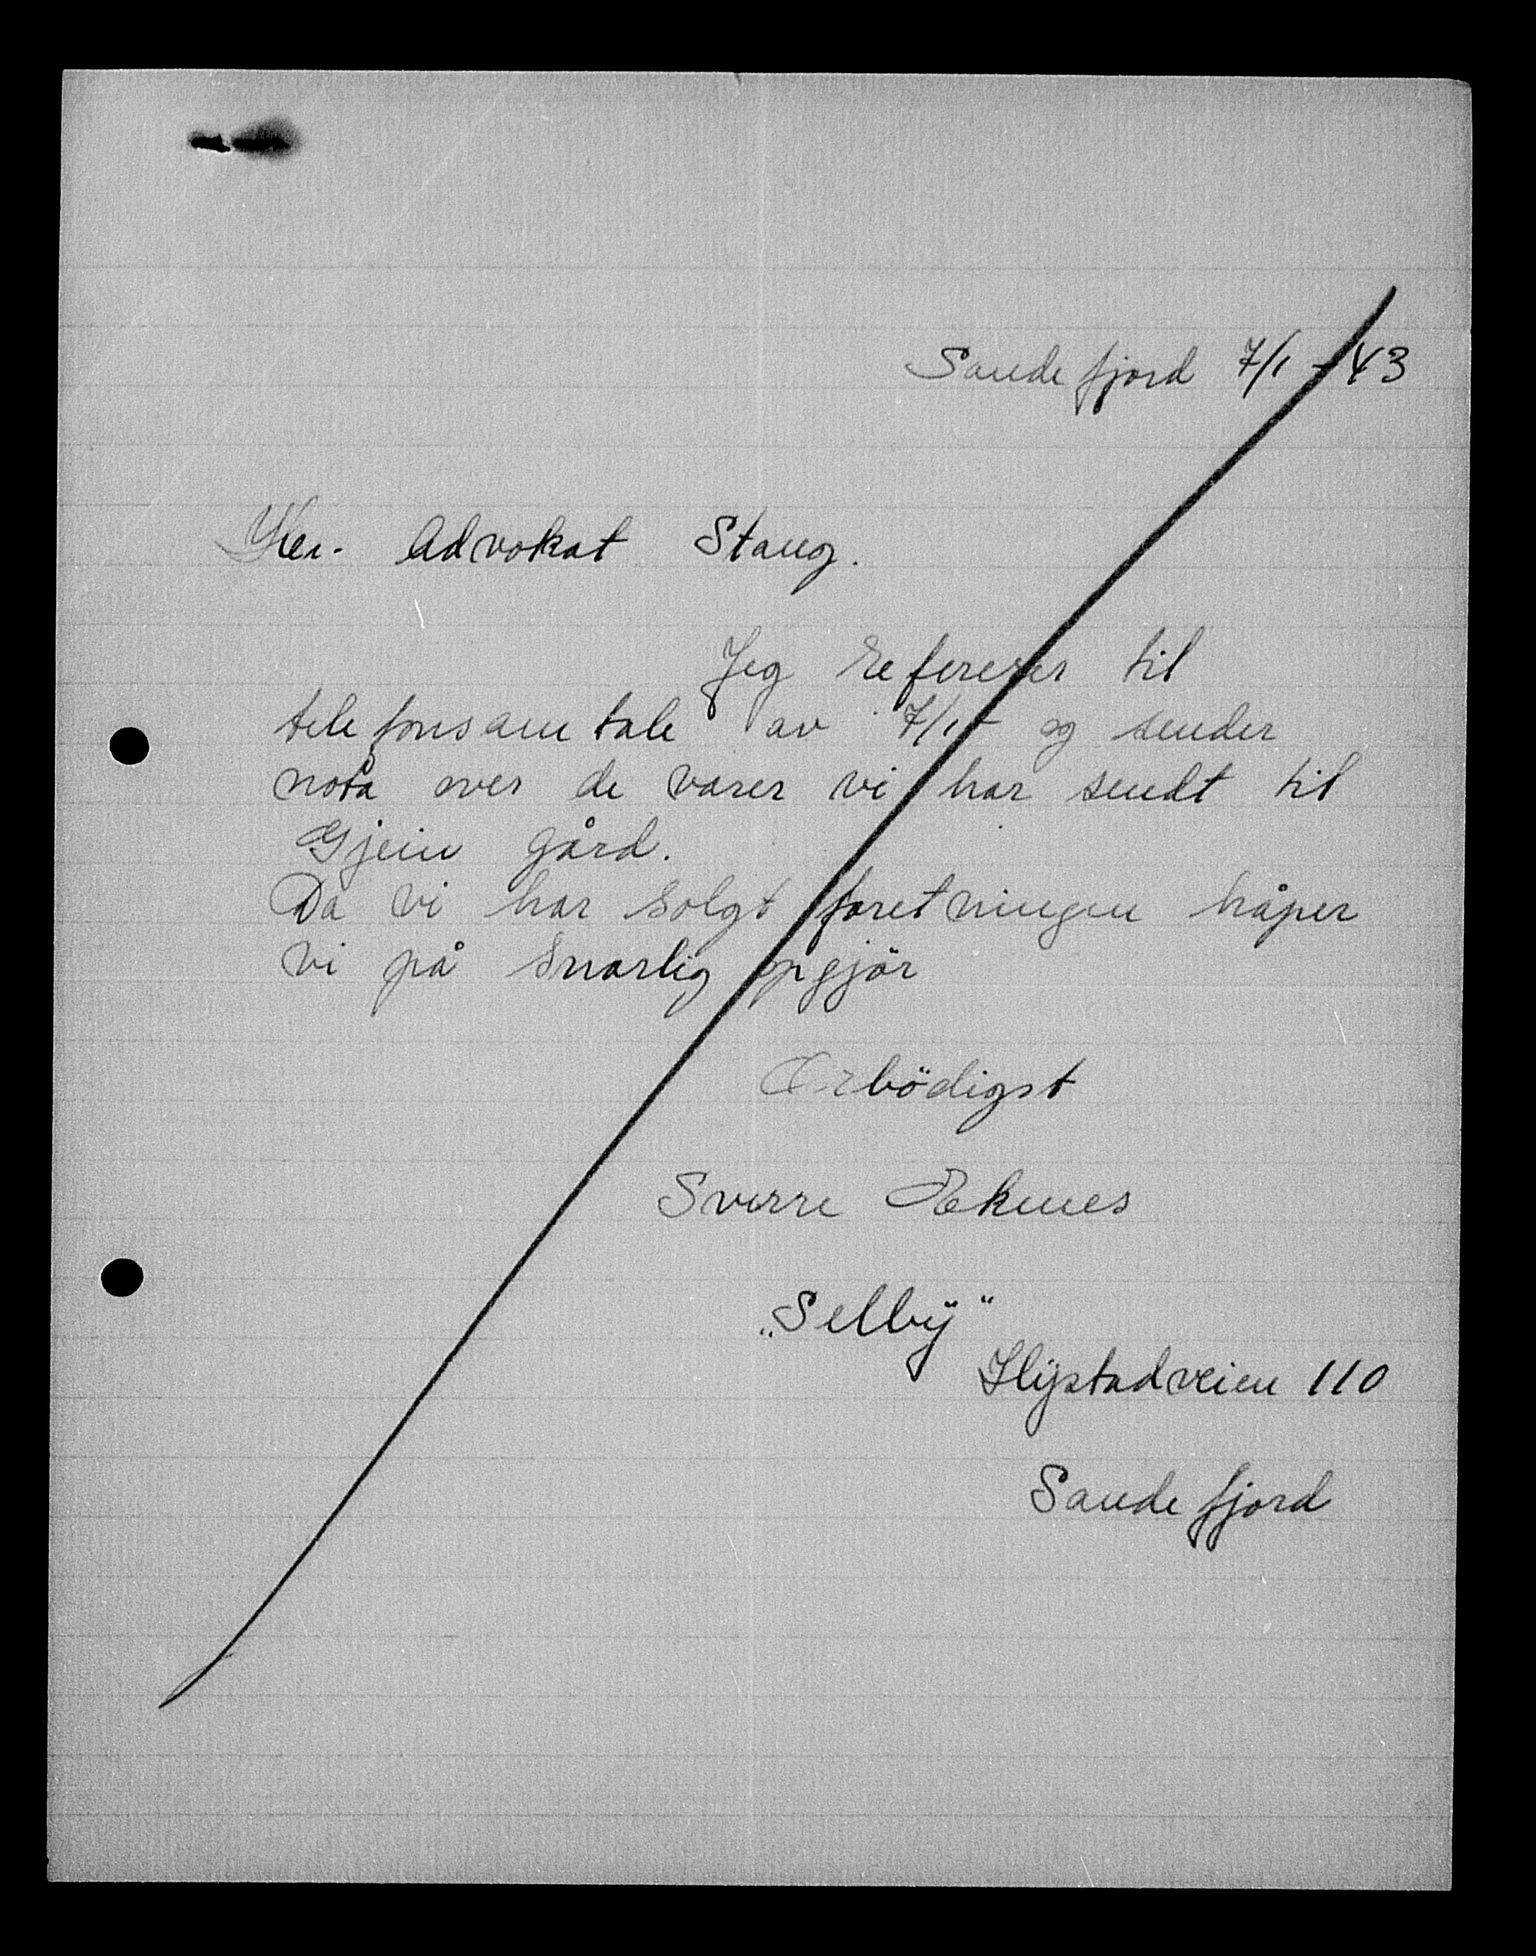 Sandefjord 7/1 - 43
Her. Advokat Stang.
Jeg refererer til
telefonsamtale av 7/1 - og sender
nota over de varer vi har sendt til
Gjein gård.
Da vi har solgt foretningen håper
vi på snarlig opgjör
Ærbödigst
Sverre Æknes
"Selbÿ"
Hÿstadveien 110
Sandefjord